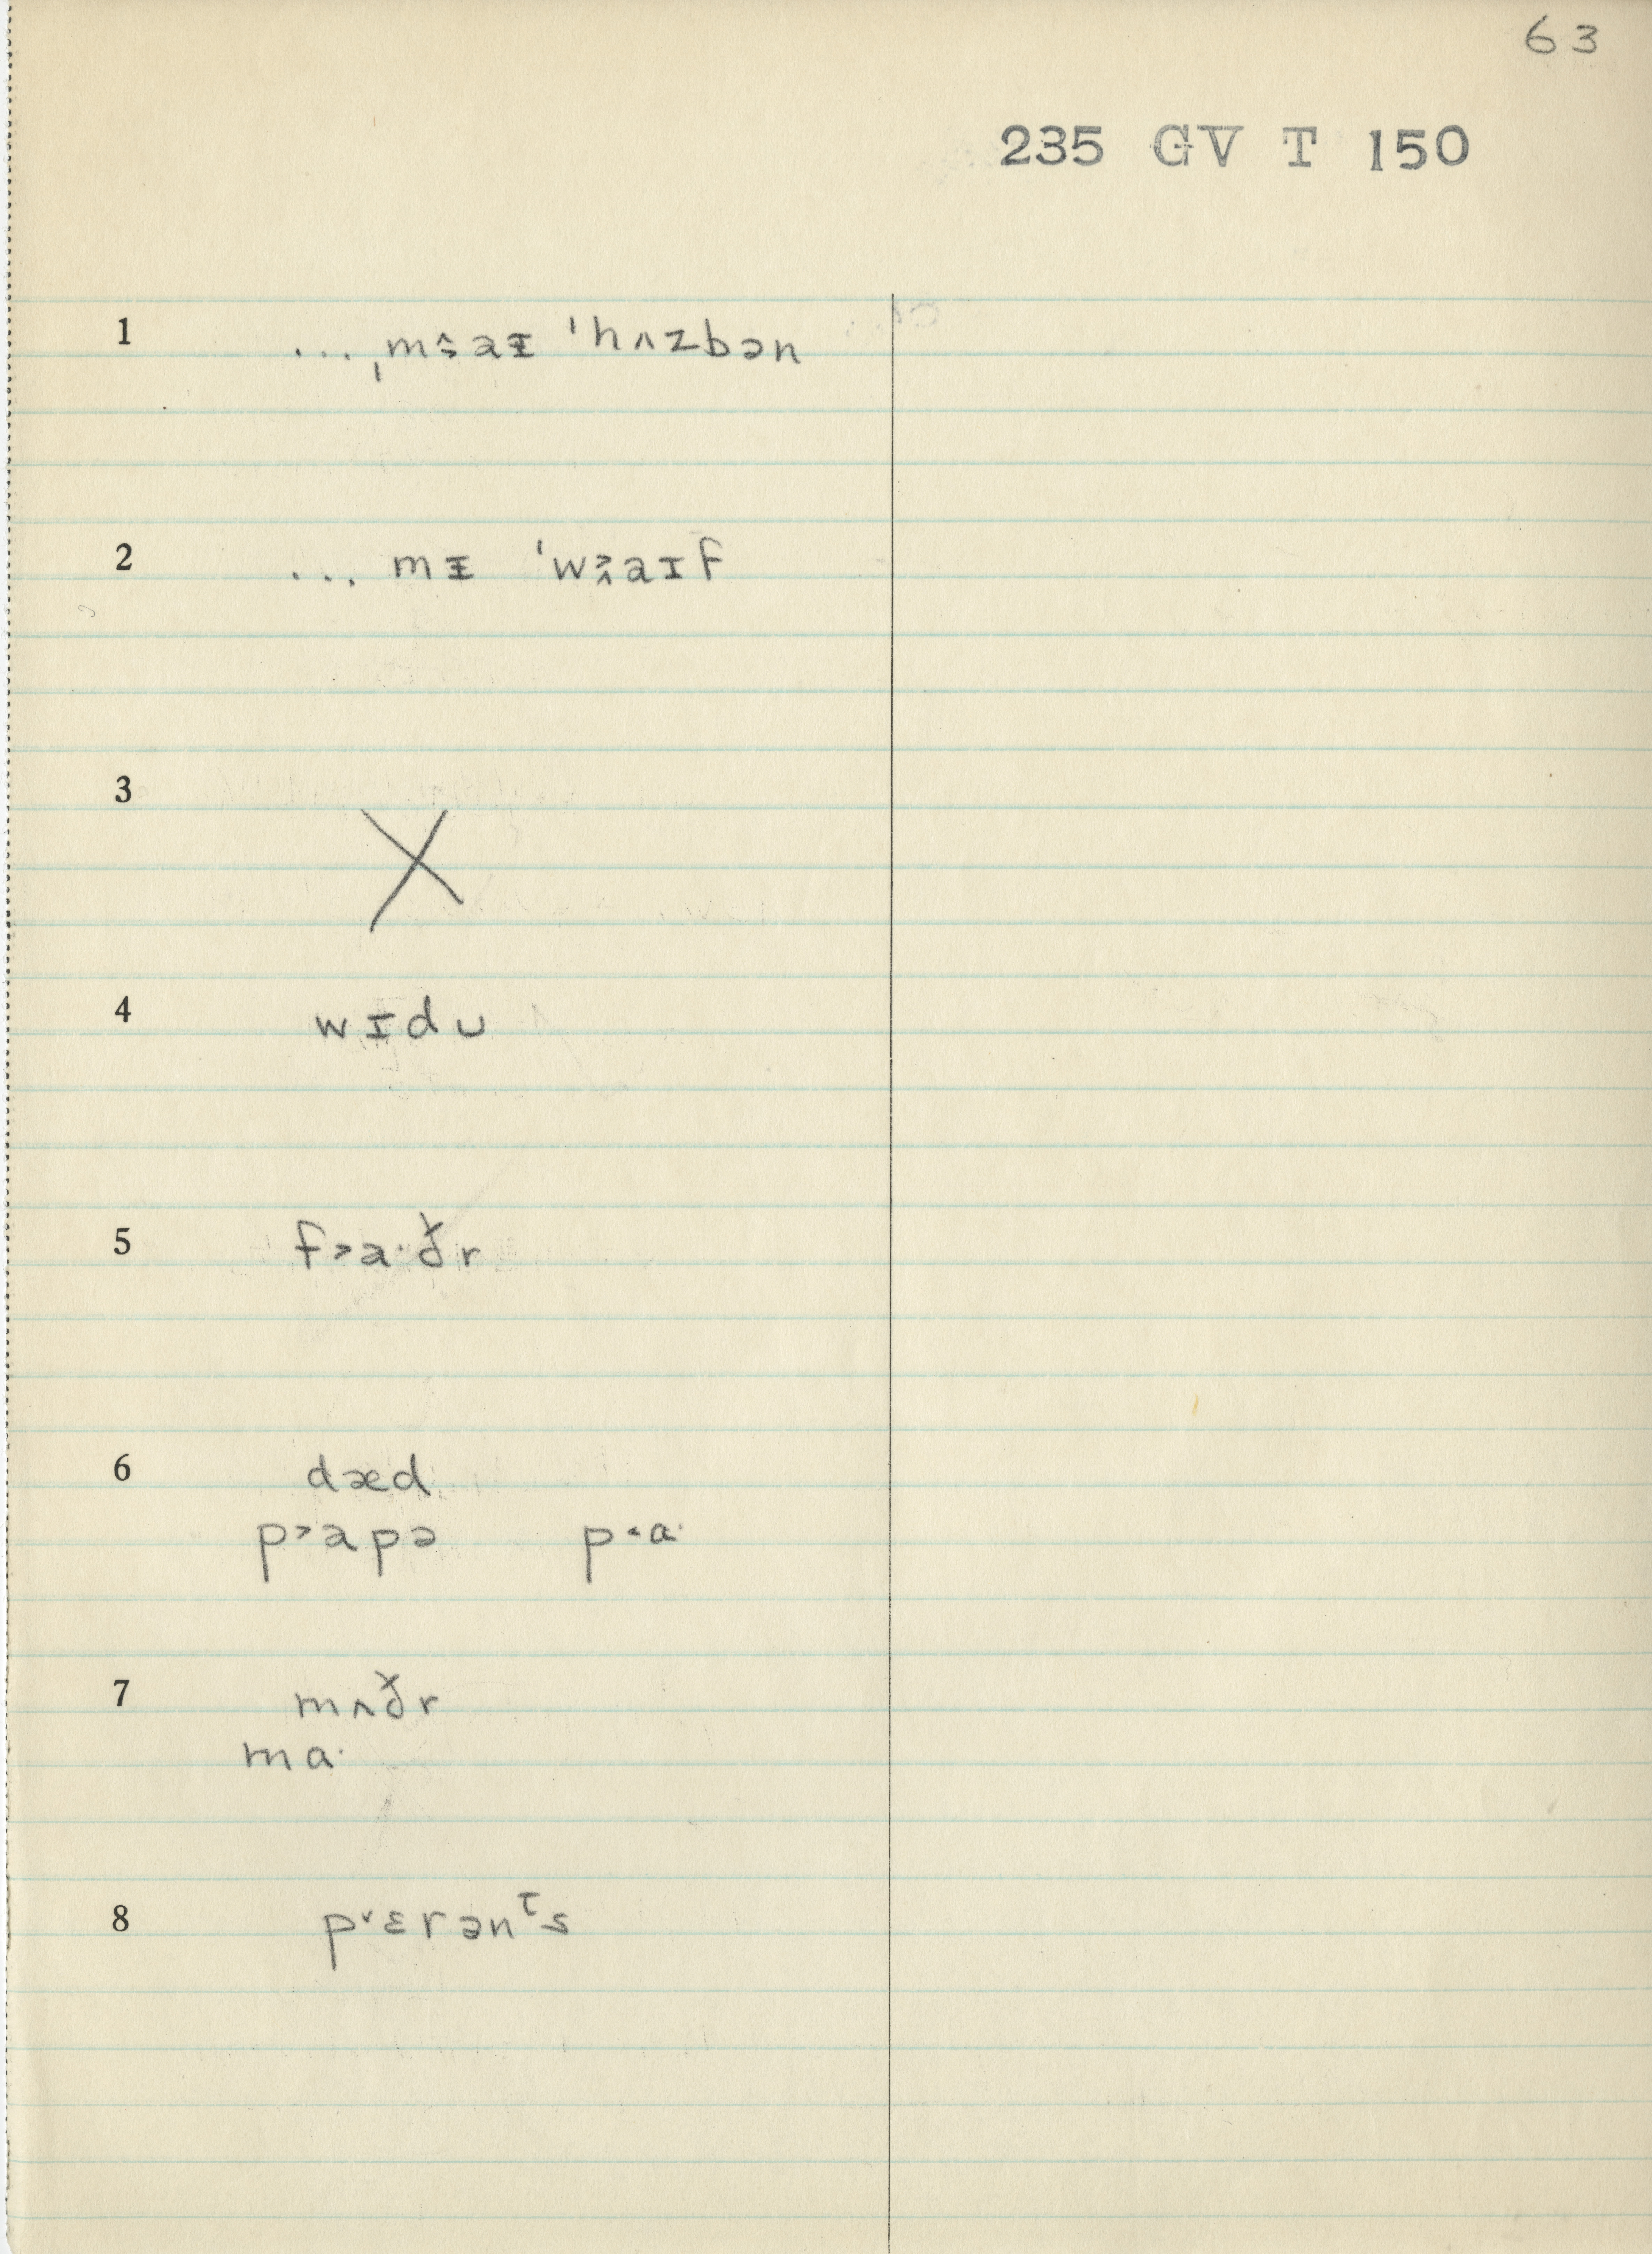 63
235 GV T 150
1 ... ˌmsaᵻ ˈhʌzbən
2 ... mᵻ ˈwaɪf
3 X
4 wɪdu
5 f˃a·ðr
6 dæd
p˃apə p˂ɑ·
7 mʌðr
mɑ·
8 p˅ɛrənᵗs